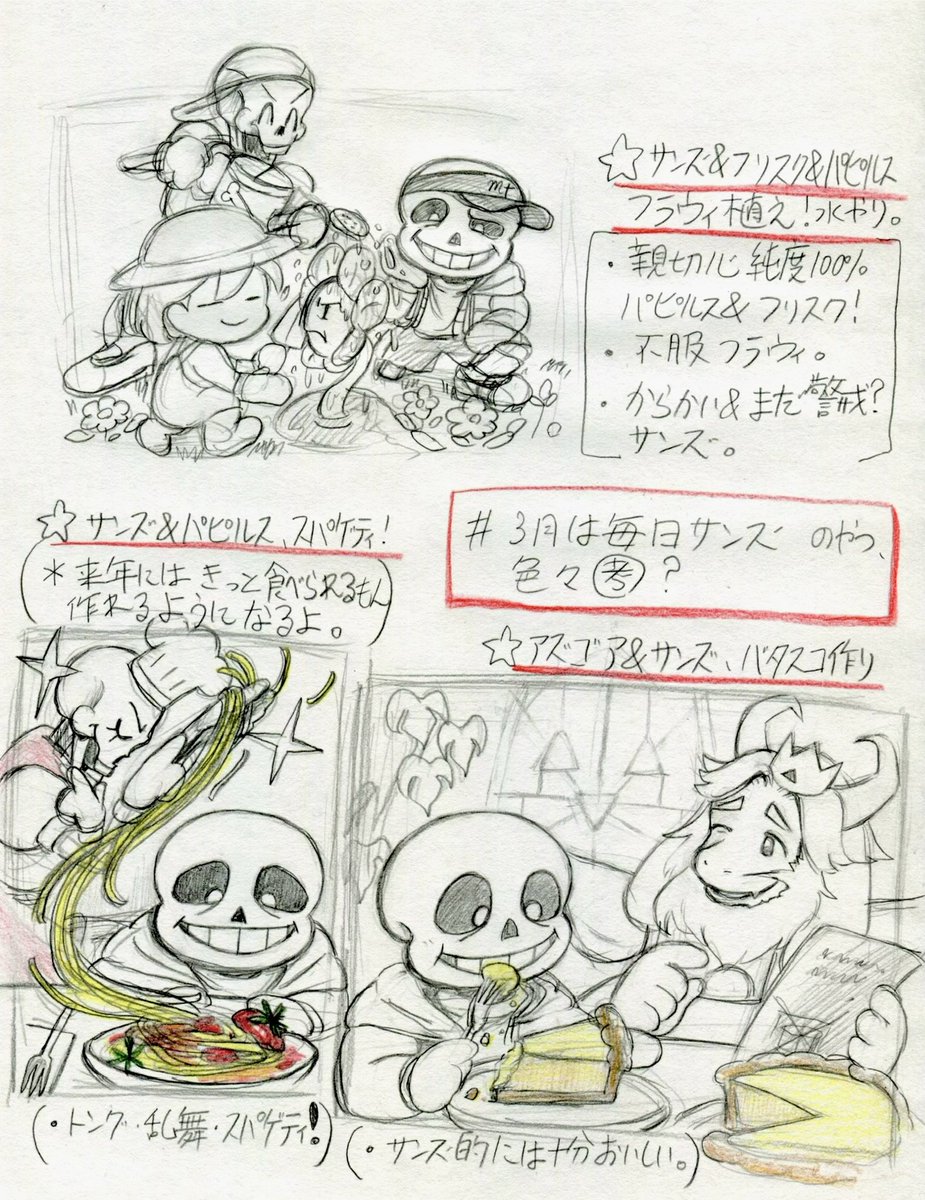 ☆サンズ&フリスク&パピルス
フラウィ植え!水やり。
・親切心 純度100%
パピルス&フリスク!
・不服 フラウィ。
・からかい&まだ警戒?
サンズ。
mt
☆サンズ&パピルス、スパゲティ!
*来年には きっと食べられるもん
作れるようになるよ。
#3月は毎日サンズ のやつ、
色々考?
☆アズゴア&サンズ、バタスコ作り
(・トング・乱舞・スパゲティ!)
(・サンズ的には十分おいしい。)